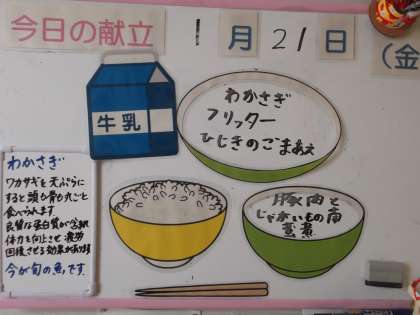 今日の献立 1月21日(金
牛乳
わかさぎ
フリッター
ひじきのごまあえ
豚肉と
じゃがいもの南
蛮煮
わかさぎ
ワカサギを天ぷらに
すると頭も骨も丸ごと
食べられます
良質な蛋白質が含まれ
体力を向上させ疲労
回復させる効果があります
今が旬の魚です